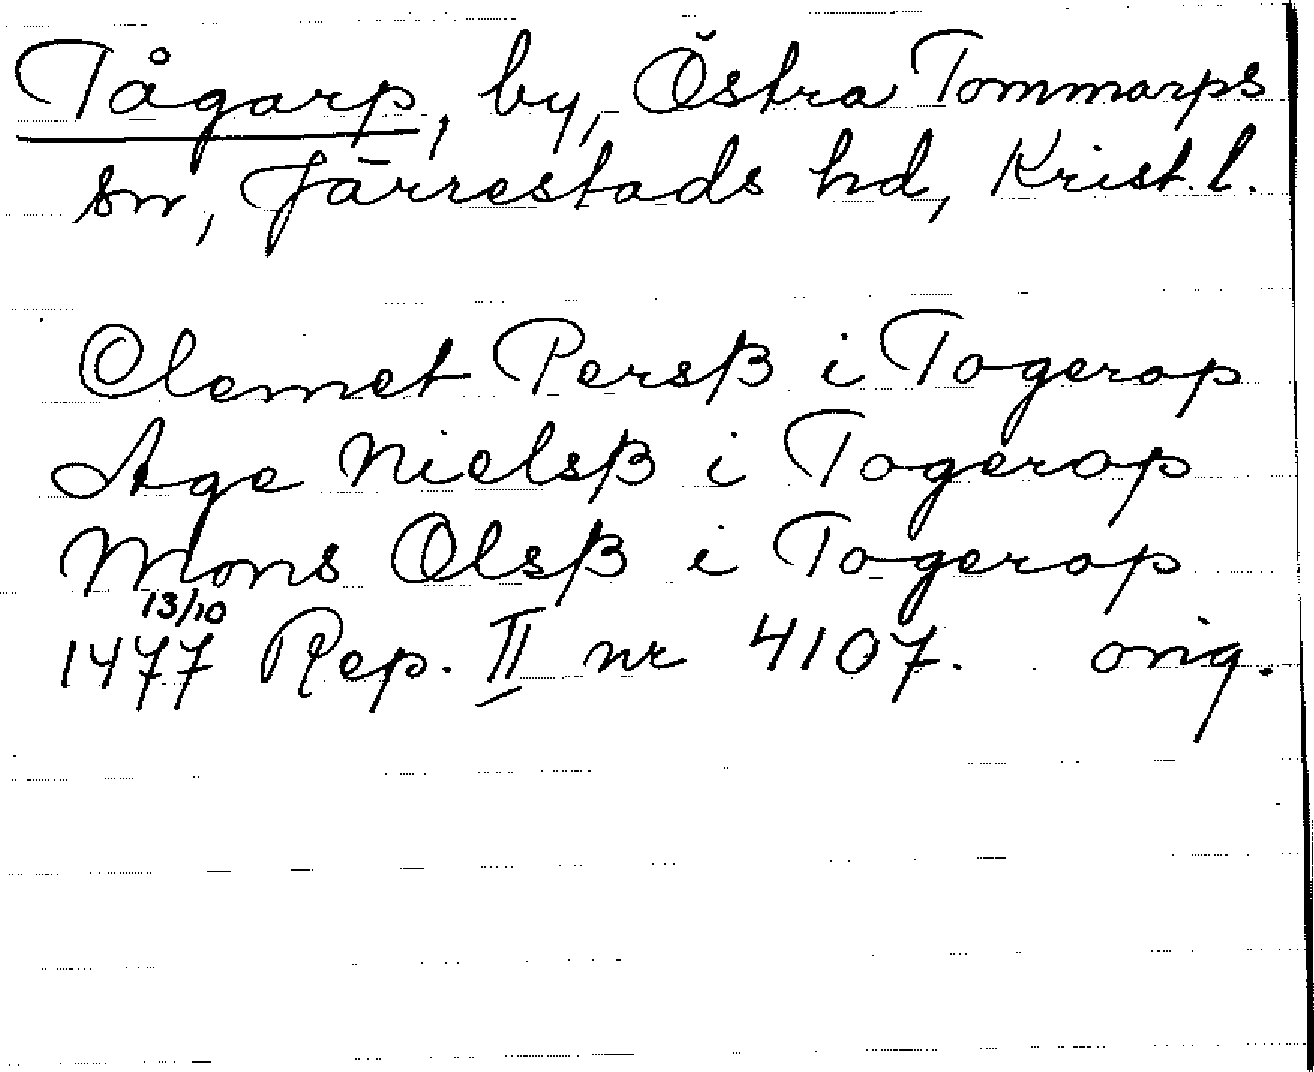 Tågarp, by, Östra Tommarps
sn, Järrestads hd, Krist. l.
Clemet Persß i Togerop
Age Nielsß i Togerop
Mons Olsß i Togerop
13/10
1477 Rep. II nr 4107. orig.